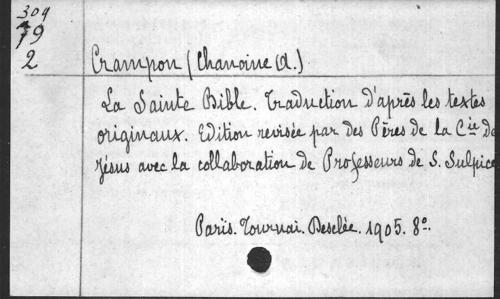 304
19
2
Crampon (Chanoine A.)
La Sainte Bible. Traduction d'après les textes
originaux. Edition revisée par des Pères de la Cie de
Jésus avec la collaboration de Professeurs de S. Sulpice
Paris. Tournai. Desclée. 1905. 8º.